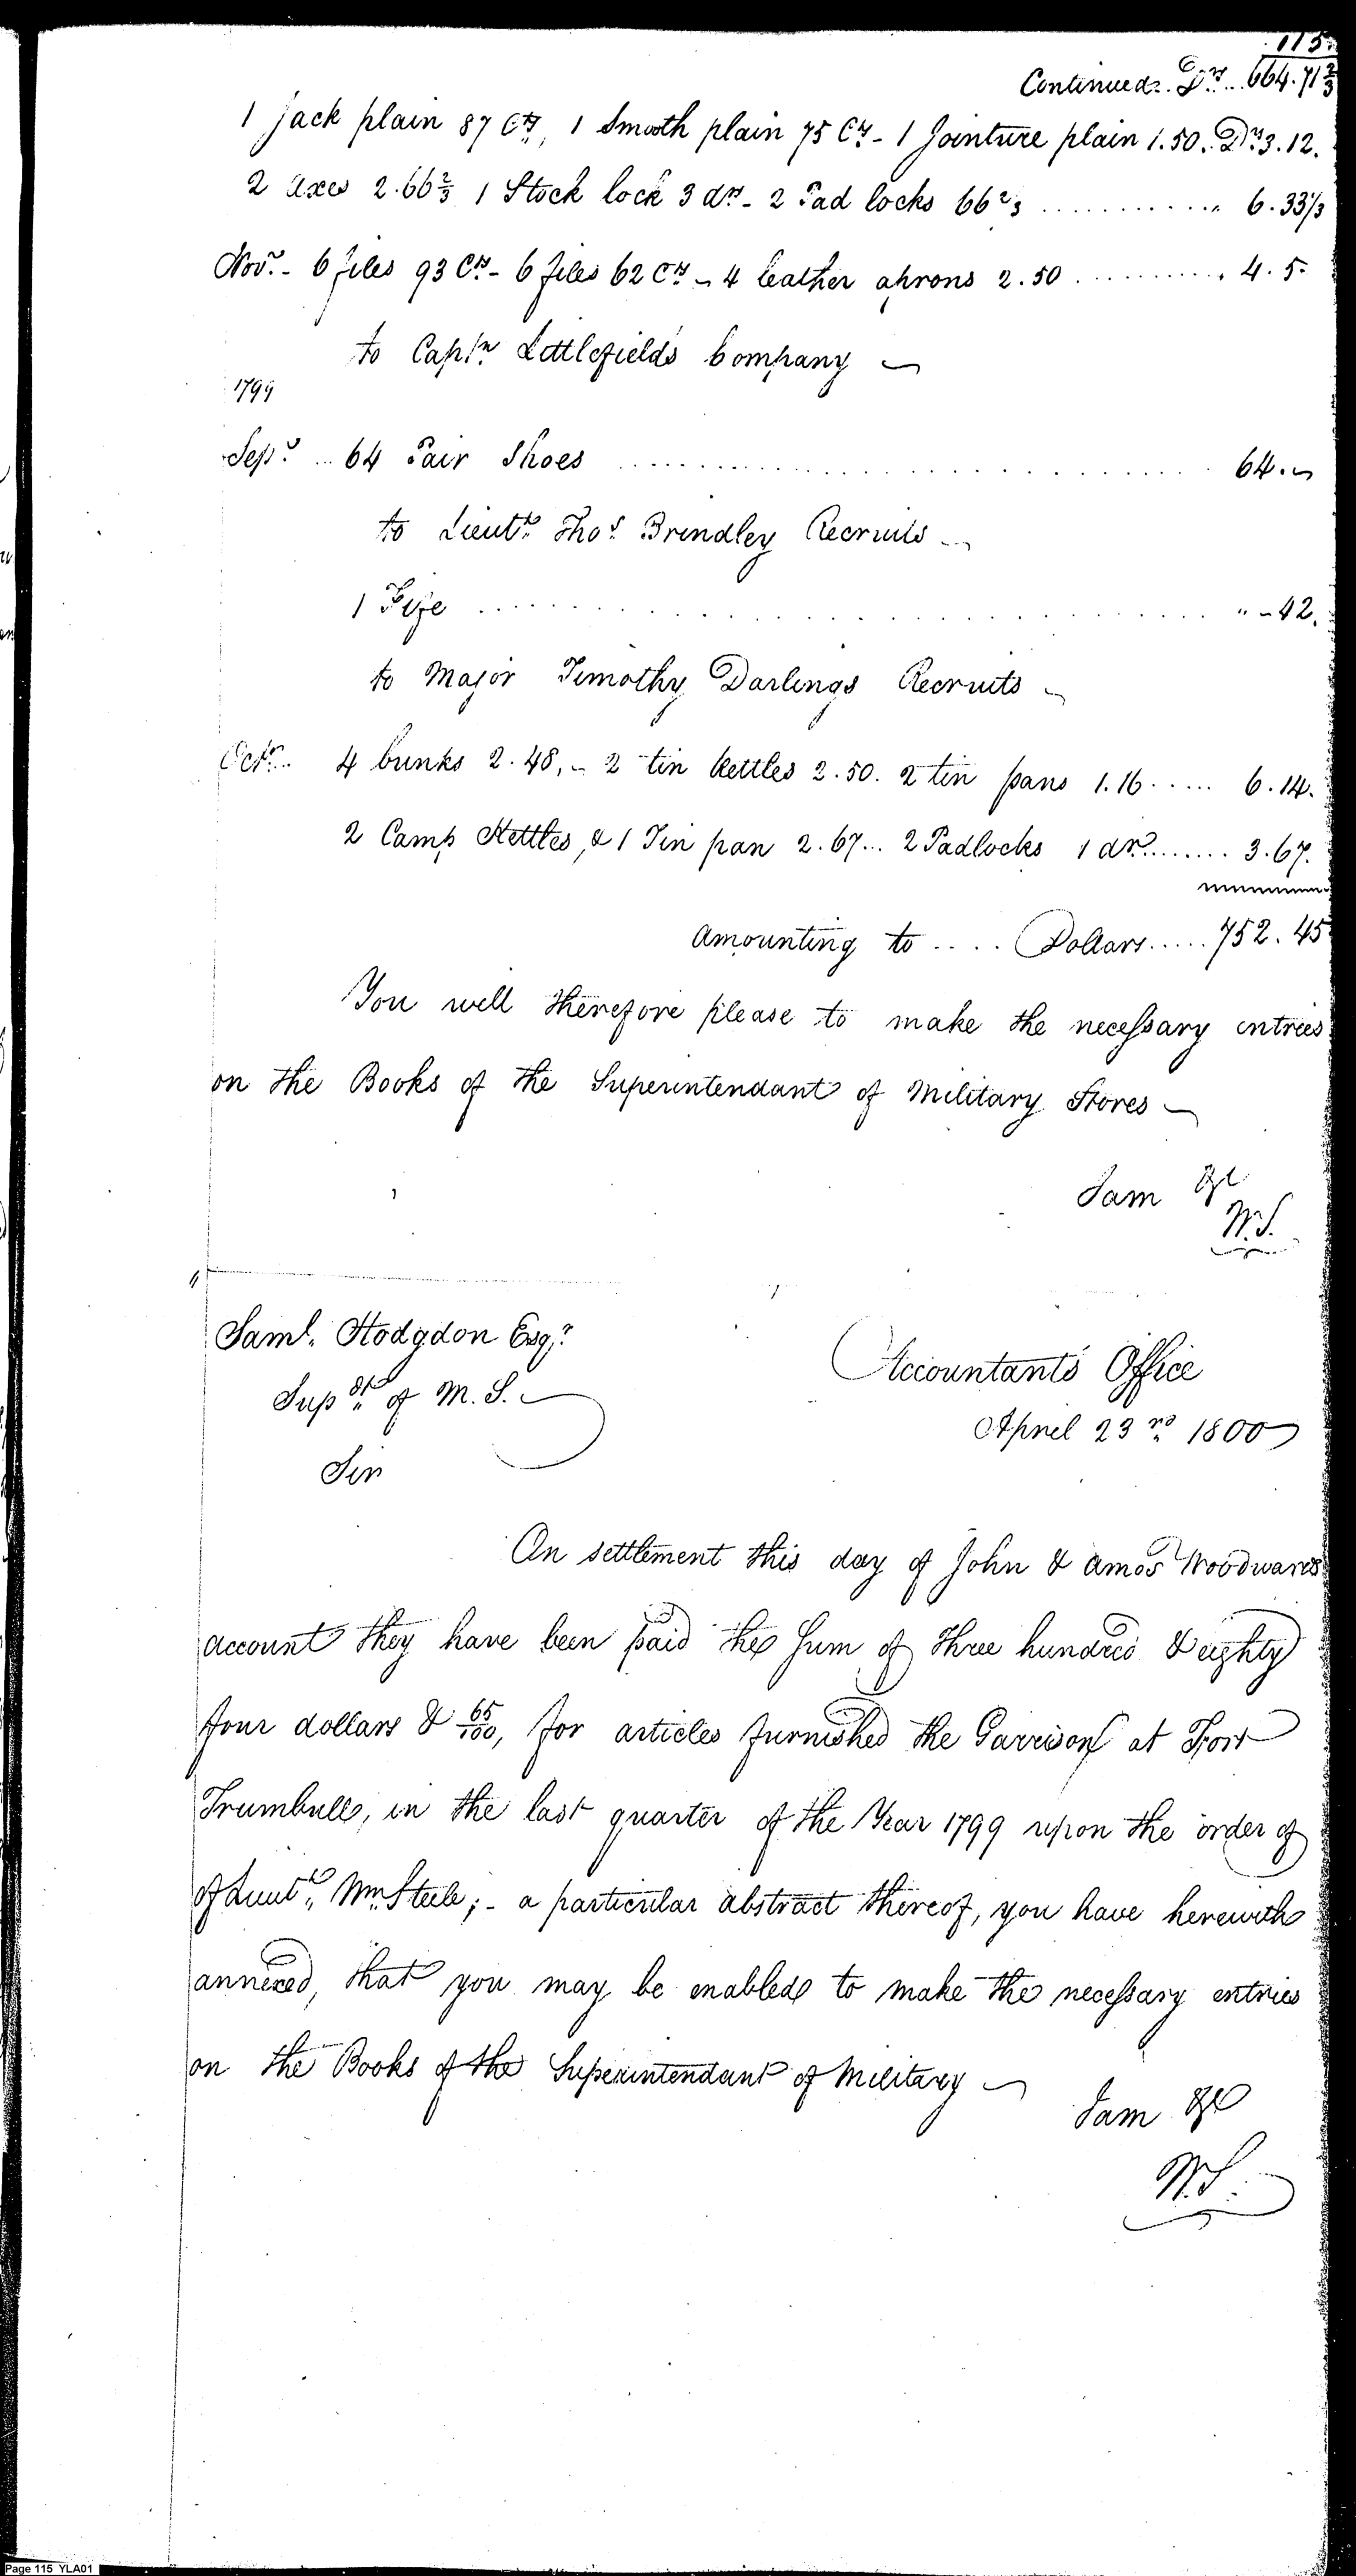 115.
Continued. Drs. 664.71⅔
1 Jack plain 87 Cts, 1 Smooth plain 75 Cts - 1 Jointure plain 1.50. Drs 3.12.
2 axes 2.66⅔ 1 Stock lock 3 drs - 2 Pad locks 66⅔ ............ " 6.33⅓
Novr. - 6 files 93 Cts - 6 files 62 Cts - 4 leather aprons 2.50 .......... " 4.5.
to Captn. Littlefield's Company
1799
Sepr. ... 64 Pair Shoes .......................... 64.
to Lieutt. Thos. Brindley Recruits
1 Fife .......................... " - 42.
to Major Timothy Darlings Recruits
Octr. 4 bunks 2.48, - 2 tin kettles 2.50. 2 tin pans 1.16 ..... 6.14.
2 Camp Kettles, & 1 Tin pan 2.67... 2 Padlocks 1 dr. ....... 3.67.
amounting to .... Dollars ..... 752.45
You will therefore please to make the necessary entries
on the Books of the Superintendant of Military Stores
I am &c
W.S.
Saml. Hodgdon Esqr.
Accountants Office
Supdt. of M. S.
April 23rd. 1800
Sir
On settlement this day of John & Amos Woodwards
account they have been paid the Sum of three hundred & eighty
four dollars & 65/100, for articles furnished the Garrison at Fort
Trumbull, in the last quarter of the Year 1799 upon the order of
of Lieutt. Wm. Steele; - a particular abstract thereof, you have herewith
annexed, that you may be enabled to make the necessary entries
on the Books of the Superintendant of Military
I am &c
W.S.
Page 115 YLA01